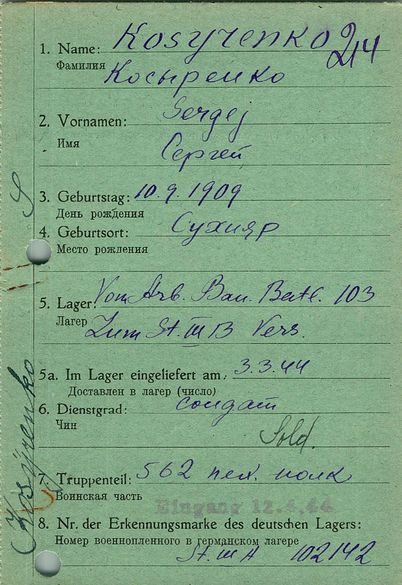 1. Name: Kosyrenko 214
Фамилия Косыренко
2. Vornamen: Sergej
Имя Сергей
3. Geburtstag: 10.9.1909
День рождения
4. Geburtsort: Сухияр
Место рождения
5. Lager: Vom Arb. Bau. Batl. 103
Лагер Zum St. III B Vers.
5a. Im Lager eingeliefert am: 3.3.44
Доставлен в лагер (число)
6. Dienstgrad: солдат
Чин Sold.
7. Truppenteil: 562 пех. полк
Воинская часть Eingang 12.4.44
8. Nr. der Erkennungsmarke des deutschen Lagers:
Номер военнопленного в германском лагере
St. III A 102142
Kosyrenko S